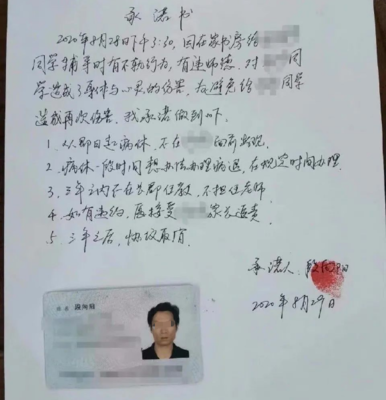 承诺书
2020年8月28日下午3:30,因在家书房给
同学辅导时有不轨行为,有违师德,对 同
学造成了身体与心灵的伤害,为避免给 同学
造成再次伤害,我承诺做到以下。
1、从即日起病休,不在 的前出现。
2、病休一段时间想办法办理病退,在规定时间办理
3、三年之内不在 任教,不担任老师
4、如有违约,愿接受 家长追责
5、三年之后,协议取消
承诺人:
2020年8月29日
姓名